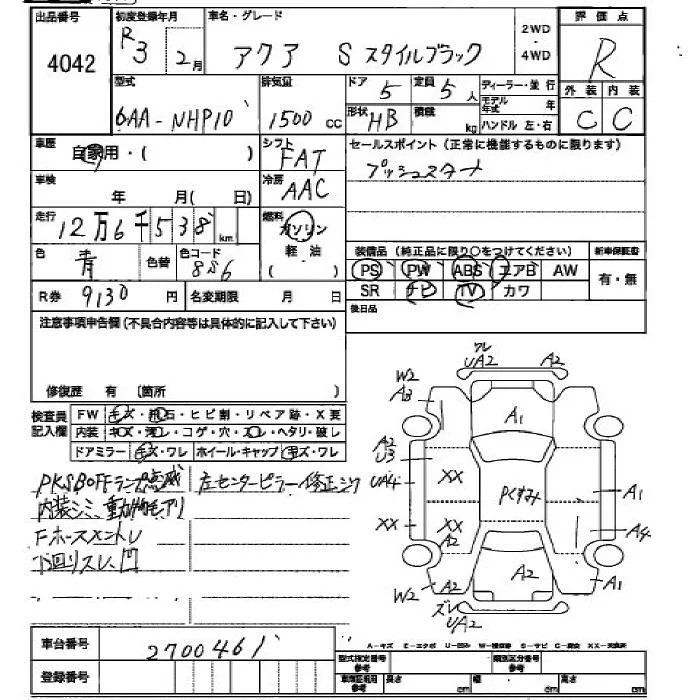 出品番号 初度登録年月 車名・グレード 2WD・4WD 評価点
4042 R3 2月 アクア S スタイルブラック R
型式 排気量 ドア 5 定員 5人 ディーラー・並行 外装 内装
6AA-NHP10 1500cc 形状 HB 積載 kg モデル年式 年 ハンドル 左・右 C C
車歴 自家用・( ) シフト FAT セールスポイント(正常に機能するものに限ります)
プッシュスタート
車検 年 月( 日) 冷房 AAC
走行 12万6千538km 燃料 ガソリン 軽油 ( )
色 青 色替 色コード 886
装備品(純正品に限り○をつけてください) 新車保証書
PS PW ABS エアB AW 有・無
SR ナビ TV カワ
R券 9130円 名変期限 月 日 後日品
注意事項申告欄(不具合内容等は具体的に記入して下さい)
修復歴 有 〔箇所 〕
検査員記入欄 FW キズ・飛石・ヒビ割・リペア跡・X要
内装 キズ・汚レ・コゲ・穴・スレ・ヘタリ・破レ
ドアミラー キズ・ワレ ホイール・キャップ キズ・ワレ
PKSBOFFランプ点滅 左センターピラー修正ジク
内装シミ 動物毛アリ
Fホースメントレ
下回リスレ、凹
ワレ
UA2 A2
W2
A3 A1
A2
U3 XX
UA4 Pくすみ A1
XX XX A2 A4
W2 A2 A2 A1
ズレ
UA2
車台番号 2700461
登録番号
A-キズ E-エクボ U-凹み W-補修跡 S-サビ C-腐食 XX-交換済
型式指定番号 参考 類別区分番号 参考
車庫証明用 参考 長さ cm 幅 cm 高さ cm